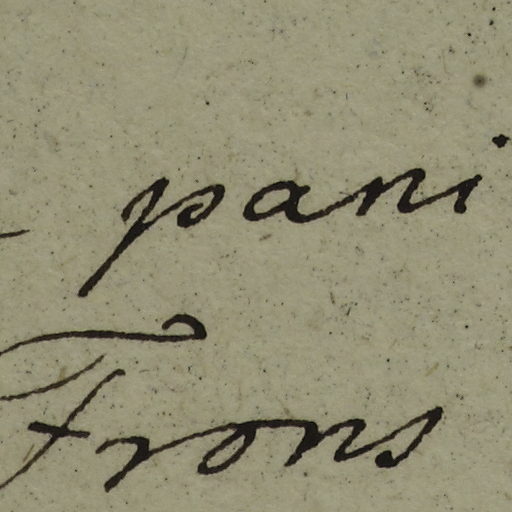 pani
Frons